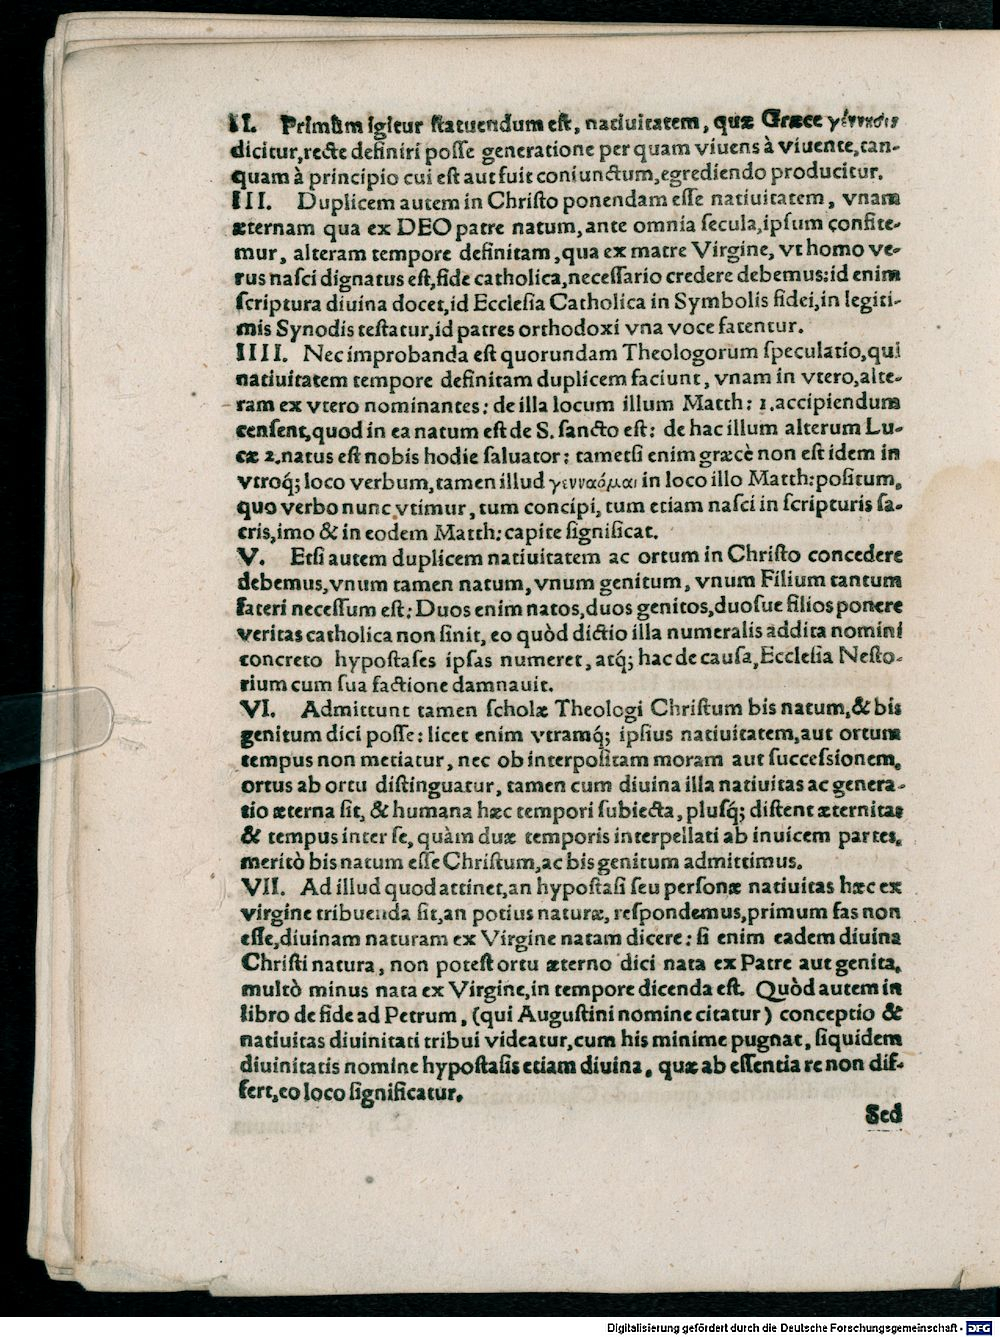 II. Primùm igitur statuendum est, natiuitatem, quæ Græce γέννησις
dicitur, recte definiri posse generatione per quam viuens à viuente, tan-
quam à principio cui est aut fuit coniunctum, egrediendo producitur.
III. Duplicem autem in Christo ponendam esse natiuitatem, vnam
æternam qua ex DEO patre natum, ante omnia secula, ipsum confite-
mur, alteram tempore definitam, qua ex matre Virgine, vt homo ve-
rus nasci dignatus est, fide catholica, necessario credere debemus: id enim
scriptura diuina docet, id Ecclesia Catholica in Symbolis fidei, in legiti-
mis Synodis testatur, id patres orthodoxi vna voce fatentur.
IIII. Nec improbanda est quorundam Theologorum speculatio, qui
natiuitatem tempore definitam duplicem faciunt, vnam in vtero, alte-
ram ex vtero nominantes: de illa locum illum Matth: 1. accipiendum
censent, quod in ea natum est de S. sancto est: de hac illum alterum Lu-
cæ 2. natus est nobis hodie saluator: tametsi enim græcè non est idem in
vtroq́; loco verbum, tamen illud γενναόμαι in loco illo Matth: positum,
quo verbo nunc vtimur, tum concipi, tum etiam nasci in scripturis sa-
cris, imo & in eodem Matth: capite significat.
V. Etsi autem duplicem natiuitatem ac ortum in Christo concedere
debemus, vnum tamen natum, vnum genitum, vnum Filium tantum
fateri necessum est: Duos enim natos, duos genitos, duosue filios ponere
veritas catholica non sinit, eo quòd dictio illa numeralis addita nomini
concreto hypostases ipsas numeret, atq́; hac de causa, Ecclesia Nesto-
rium cum sua factione damnauit.
VI. Admittunt tamen scholæ Theologi Christum bis natum, & bis
genitum dici posse: licet enim vtramq́; ipsius natiuitatem, aut ortum
tempus non metiatur, nec ob interpositam moram aut successionem,
ortus ab ortu distinguatur, tamen cum diuina illa natiuitas ac genera-
tio æterna sit, & humana hæc tempori subiecta, plusq́; distent æternitas
& tempus inter se, quàm duæ temporis interpellati ab inuicem partes,
meritò bis natum esse Christum, ac bis genitum admittimus.
VII. Ad illud quod attinet, an hypostasi seu personæ natiuitas hæc ex
virgine tribuenda sit, an potius naturæ, respondemus, primum fas non
esse, diuinam naturam ex Virgine natam dicere: si enim eadem diuina
Christi natura, non potest ortu æterno dici nata ex Patre aut genita,
multò minus nata ex Virgine, in tempore dicenda est. Quòd autem in
libro de fide ad Petrum, (qui Augustini nomine citatur) conceptio &
natiuitas diuinitati tribui videatur, cum his minime pugnat, siquidem
diuinitatis nomine hypostasis etiam diuina, quæ ab essentia re non dif-
fert, eo loco significatur.
Sed
Digitalisierung gefördert durch die Deutsche Forschungsgemeinschaft - DFG